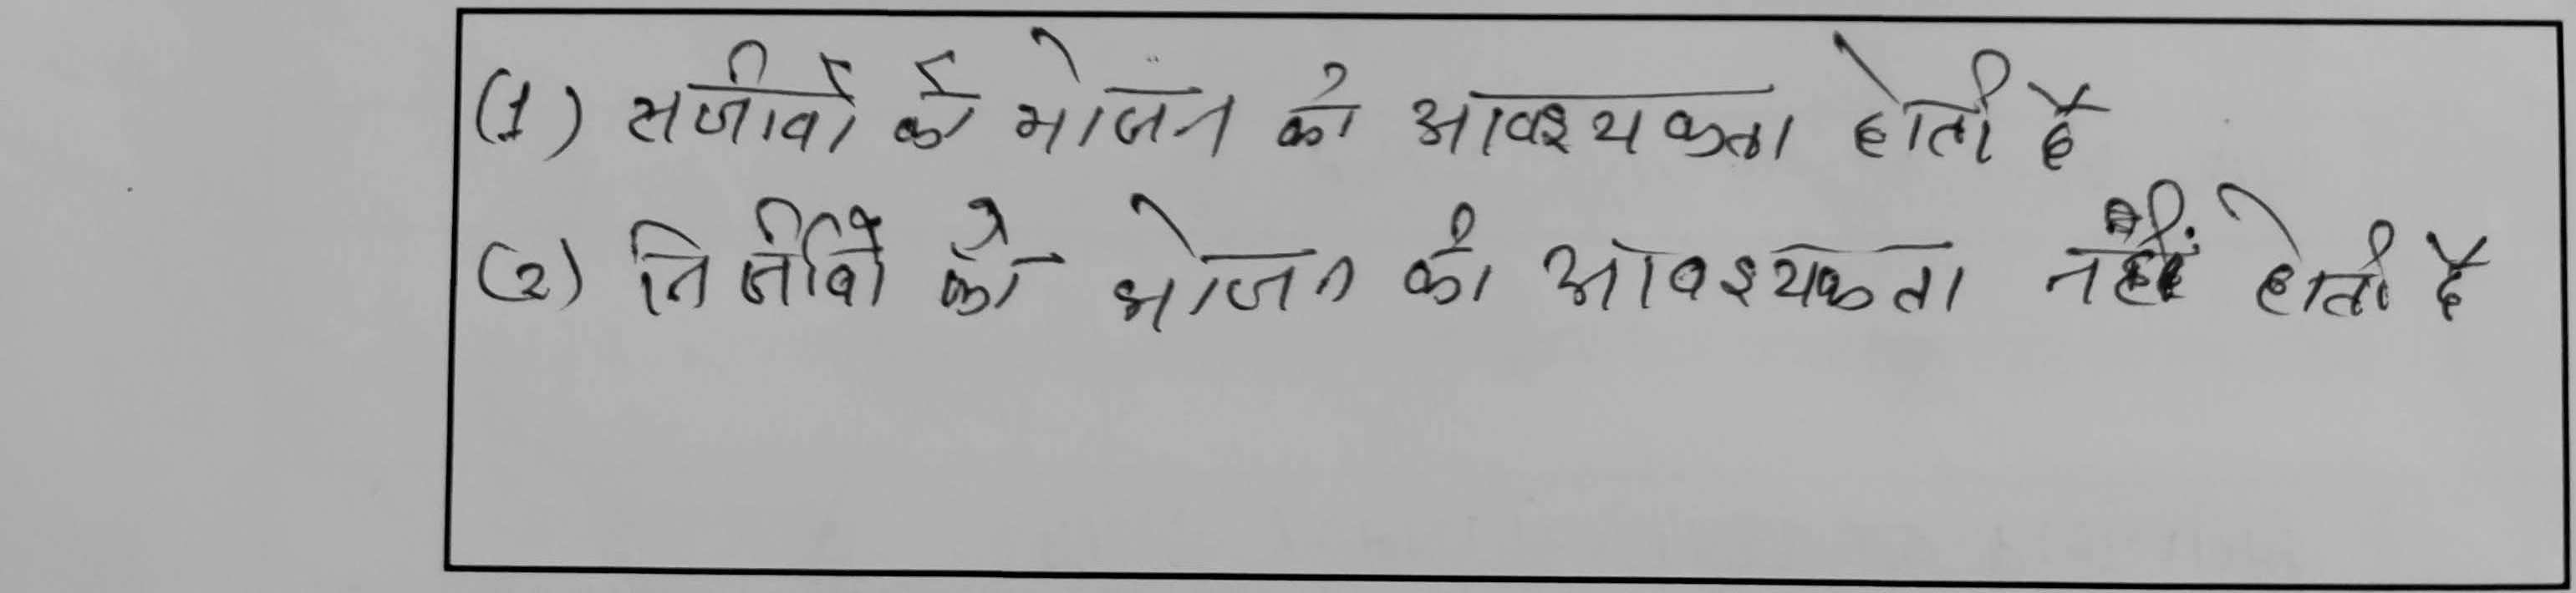 (1) सजीवों को भोजन की आवश्यकता होती है
(2) निर्जीवों को भोजन की आवश्यकता नहीं होती है